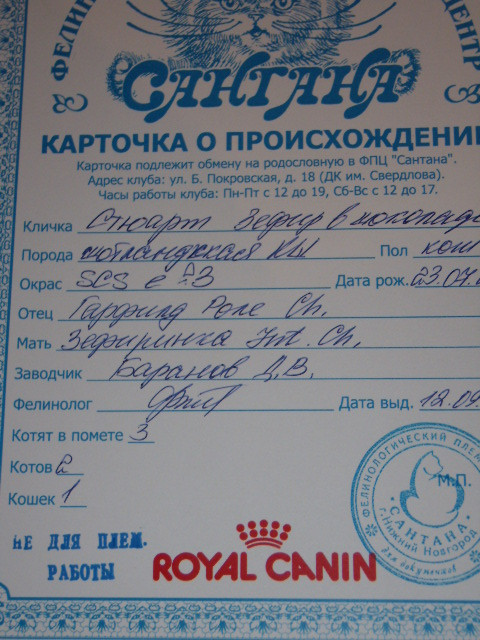 ФЕЛИН
ЦЕНТР
САНТАНА
КАРТОЧКА О ПРОИСХОЖДЕНИ
Карточка подлежит обмену на родословную в ФПЦ "Сантана".
Адрес клуба: ул. Б. Покровская, д. 18 (ДК им. Свердлова).
Часы работы клуба: Пн-Пт с 12 до 19, Сб-Вс с 12 до 17.
Кличка Стюарт Зефир в шоколаде
Порода шотландская Пол кот
Окрас SCS e Дата рож. 23.07.
Отец Гарфилд Ch.
Мать Зефиринка Int. Ch.
Заводчик Баранов Д.В.
Фелинолог Дата выд. 12.09
Котят в помете 3
Котов 2
Кошек 1
М.П.
ФЕЛИНОЛОГИЧЕСКИЙ ПЛЕМ
САНТАНА
г.Нижний Новгород
для документов
НЕ ДЛЯ ПЛЕМ.
РАБОТЫ
ROYAL CANIN